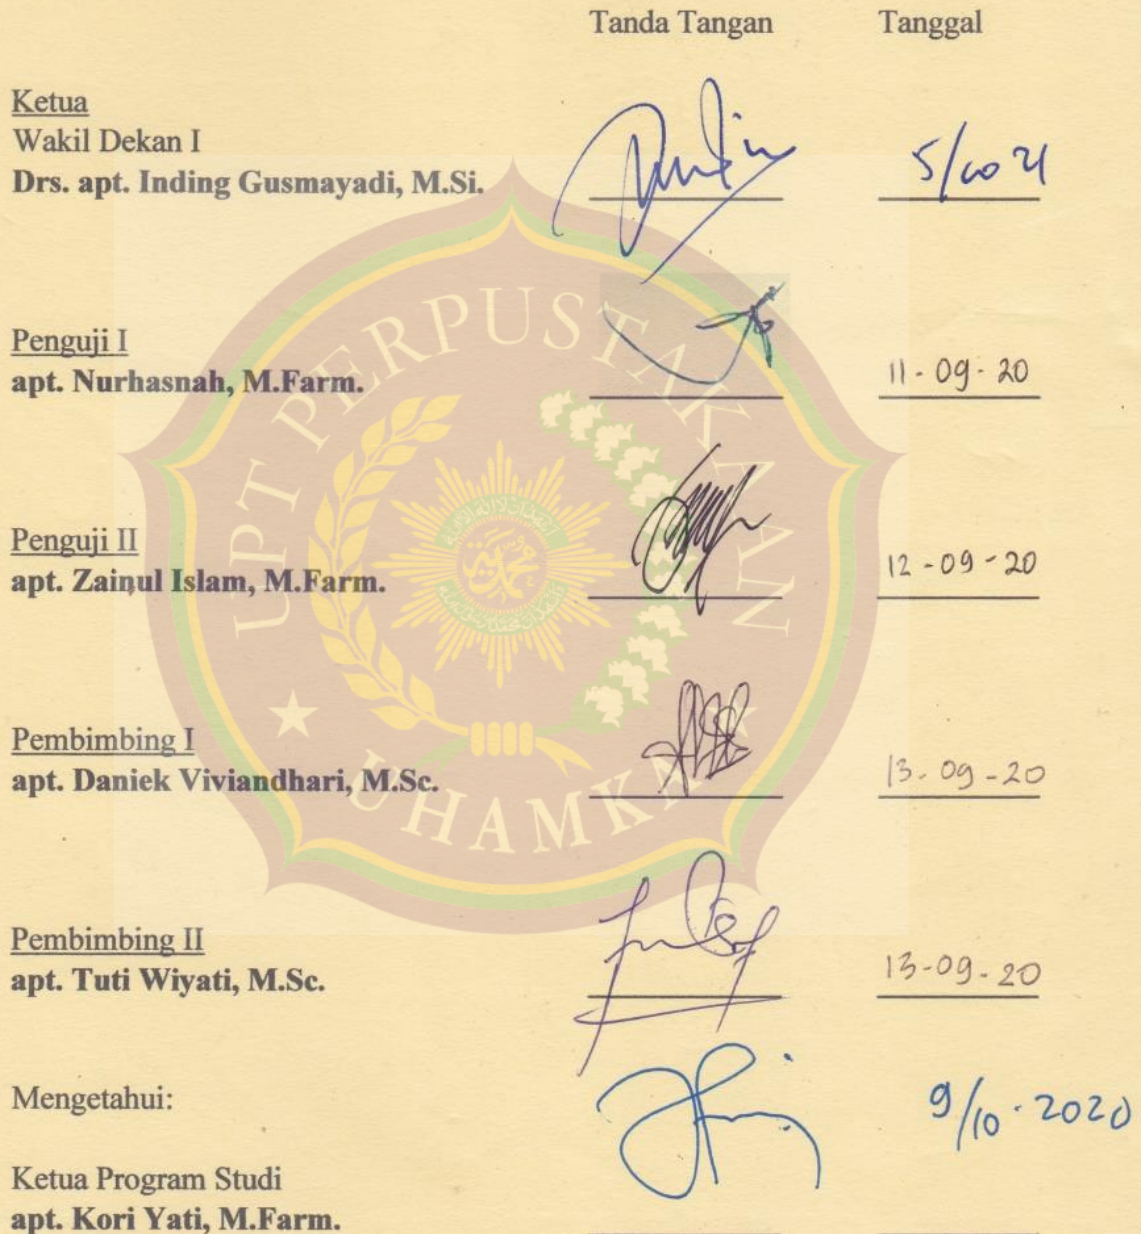 Tanda Tangan Tanggal
Ketua
Wakil Dekan I
Drs. apt. Inding Gusmayadi, M.Si.
5/10 21
Penguji I
apt. Nurhasnah, M.Farm.
11-09-20
Penguji II
apt. Zainul Islam, M.Farm.
12-09-20
Pembimbing I
apt. Daniek Viviandhari, M.Sc.
13-09-20
Pembimbing II
apt. Tuti Wiyati, M.Sc.
13-09-20
Mengetahui:
9/10-2020
Ketua Program Studi
apt. Kori Yati, M.Farm.
UPT PERPUSTAKAAN
UHAMKA